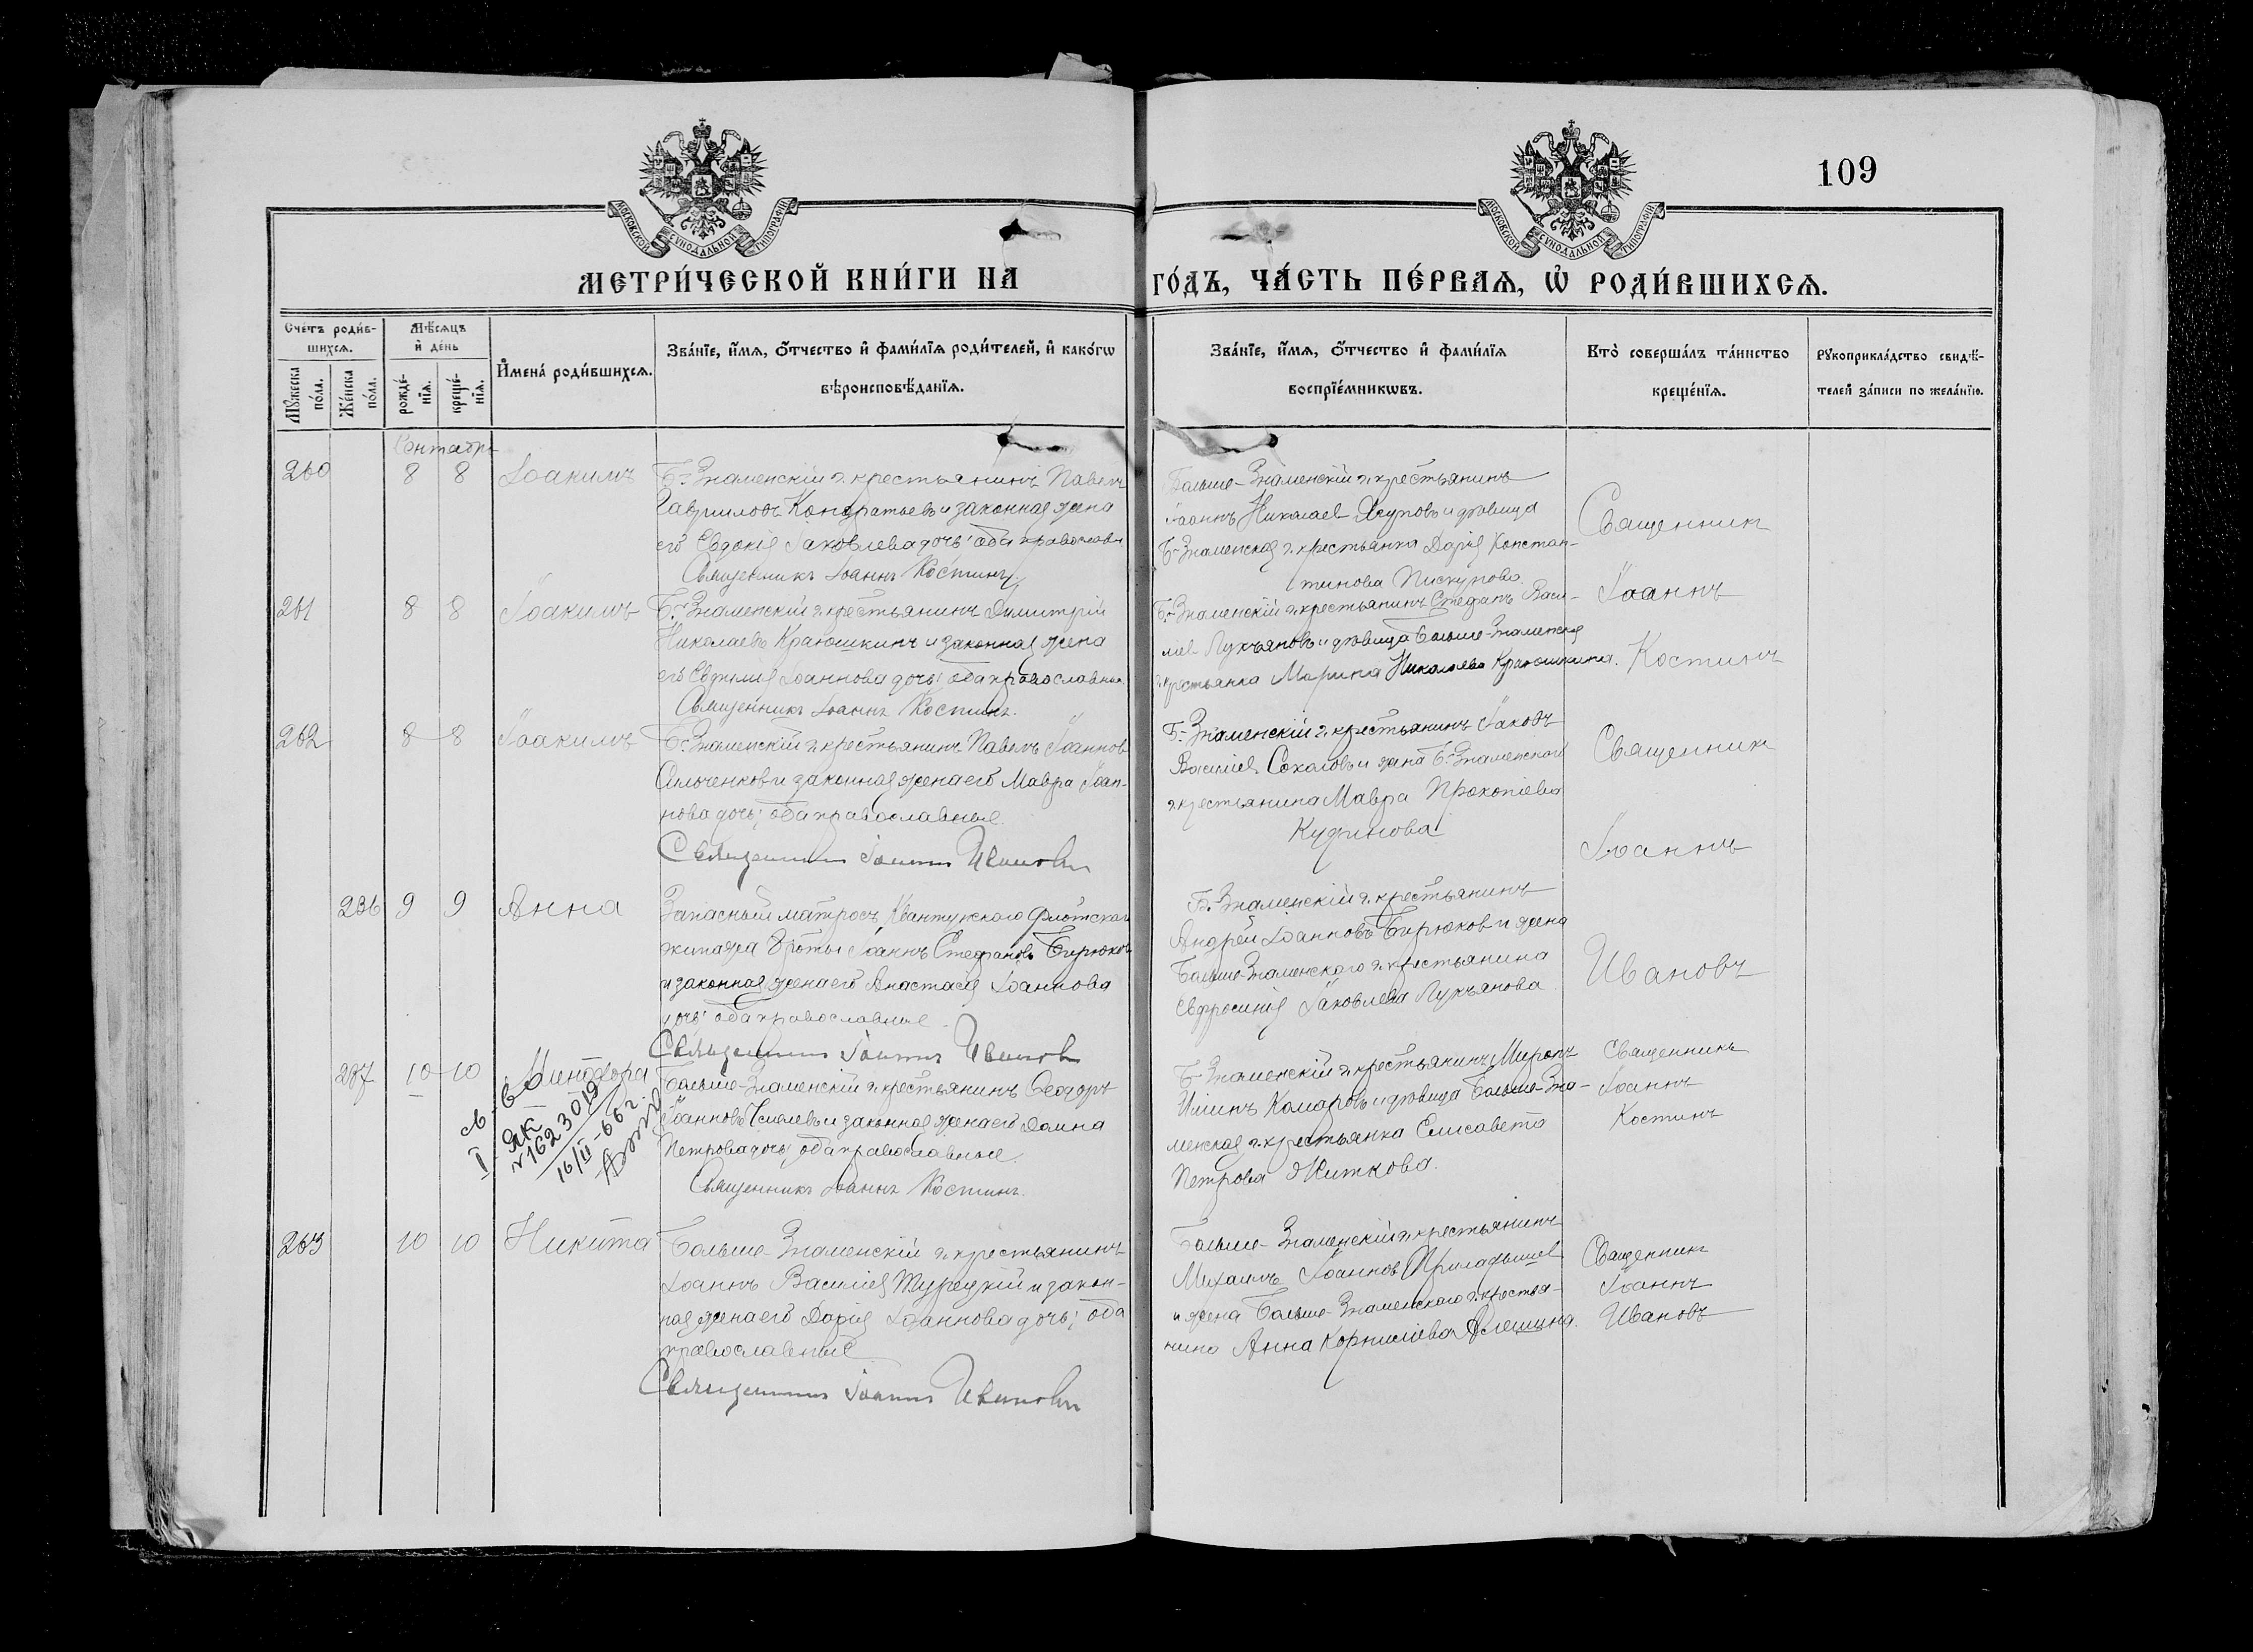 109
МОСКОВСКОЙ СѴНОДАЛЬНОЙ ТИПОГРАФІИ
МОСКОВСКОЙ СѴНОДАЛЬНОЙ ТИПОГРАФІИ
МЕТРИ́ЧЕСКОЙ КНИ́ГИ НА
ГО́ДЪ, ЧА́СТЬ ПЕ́РВАѦ, Ѡ҆ РОДИ́ВШИХСѦ.
Сче́тъ роди́в-
шихсѧ.
Мꙋ́жеска по́ла.
Же́нска по́ла.
Мѣ́сѧцъ
и҆ де́нь
рожде́-
нїѧ.
креще́-
нїѧ.
И҆мена̀ роди́вшихсѧ.
Зва́нїе, и҆́мѧ, ѻ҆́тчество и҆ фами́лїѧ роди́телей, и҆ како́гѡ
вѣроисповѣ́данїѧ.
Зва́нїе, и҆́мѧ, ѻ҆́тчество и҆ фами́лїѧ
воспрїе́мникѡвъ.
Кто̀ соверша́лъ та́инство
креще́нїѧ.
Рꙋкоприкла́дство свидѣ́-
телей за́писи по жела́нїю.
Сентябрь
260 8 8 Іоакимъ
Б.-Знаменскій г. крестьянинъ Павелъ
Гавриловъ Кондратьевъ и законная жена
его Евдокія Іаковлева дочь; оба православн.
Священникъ Іоаннъ Костинъ.
Больше-Знаменскій г. крестьянинъ
Іоаннъ Николаев и дѣвица
Б.-Знаменская г. крестьянка Дарія Констан-
тинова Пискунова.
Священник
261 8 8 Іоакимъ
Б.-Знаменскій г. крестьянинъ Димитрій
Николаевъ Краюшкинъ и законная жена
его Евфимія Іоаннова дочь; оба православные.
Священникъ Іоаннъ Костинъ.
Б.-Знаменскій г. крестьянинъ Стефанъ Васи-
лiев Лукъяновъ и дѣвица Больше-Знаменская
г. крестьянка Марина Николаева Краюшкина.
Іоаннъ
Костинъ
262 8 8 Іоакимъ
Б.-Знаменскій г. крестьянинъ Павелъ Іоаннов
и законная жена его Мавра Іоан-
нова дочь; оба православные.
Священникъ Іоаннъ Ивановъ
Б.-Знаменскій г. крестьянинъ Іаковъ
Василіев Соколовъ и жена Б.-Знаменского
г. крестьянина Мавра Прокопіева
Кудинова
Священник
Іоаннъ
236 9 9 Анна
Запасный матросъ Квантунского Флотского
экипажа 8 роты Іоаннъ Стефановъ Бирюков
и законная жена его Анастасія Іоаннова
дочь; оба православные.
Священникъ Іоаннъ Иванов
Б. Знаменскій г. крестьянинъ
Андрей Іоанновъ Бирюков и жена
Больше-Знаменского г. крестьянина
Евфросинія Іаковлева Лукъянова.
Ивановъ
237 10 10 Минодора
I св-во ЯК
№ 1623019
16/III-66 г.
Больше-Знаменскій г. крестьянинъ Ѳеодоръ
Іоанновъ и законная жена его Домна
Петрова дочь; оба православные.
Священникъ Іоаннъ Костинъ.
Б.-Знаменскій г. крестьянинъ Миронъ
Илiинъ Комаровъ и дѣвица Больше-Зна-
менская г. крестьянка Елисавета
Петрова Житкова.
Священникъ
Іоаннъ
Костинъ
263 10 10 Никита
Больше-Знаменскій г. крестьянинъ
Іоаннъ Василіев Турецкій и закон-
ная жена его Дарія Іоаннова дочь; оба
православные
Священникъ Іоаннъ Ивановъ
Больше-Знаменскій г. крестьянинъ
Михаилъ Іоаннов
и жена Больше-Знаменского г. крестья-
нина Анна Корниліева Алешина.
Священник
Іоаннъ
Ивановъ